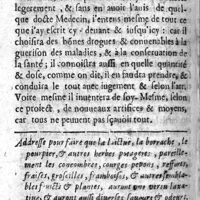 legerement, & sans en avoir l'avis de quel-
que docte Medecin, i'entens mesme de tout ce
que i'ay escrit cy-devant & iusqu'icy : car il
choisira des bōnes drogues & convenables à la
guerison des maladies, & à la conservation de
la santé ; il connoistra aussi en quelle quantité
& dose, comme on dit, il en faudra prendre, &
conduira le tout avec iugement & selon l'art.
Voire mesme il inventera de soy-mesme, selon
ce project, de nouveaux artifices & moyens,
car tous ne peuvent pas sçavoir tout.
Addresse pour faire que la Laictuë, la borrache, le
pourpier, & autres herbes potageres, pareille-
ment les concombres, courges, pepons, raisins,
fraises, groseilles, framboises, & autres sembla-
bles fruicts & plantes, auront une vertu laxa-
tive, & auront aussi diverses saveurs & odeurs,